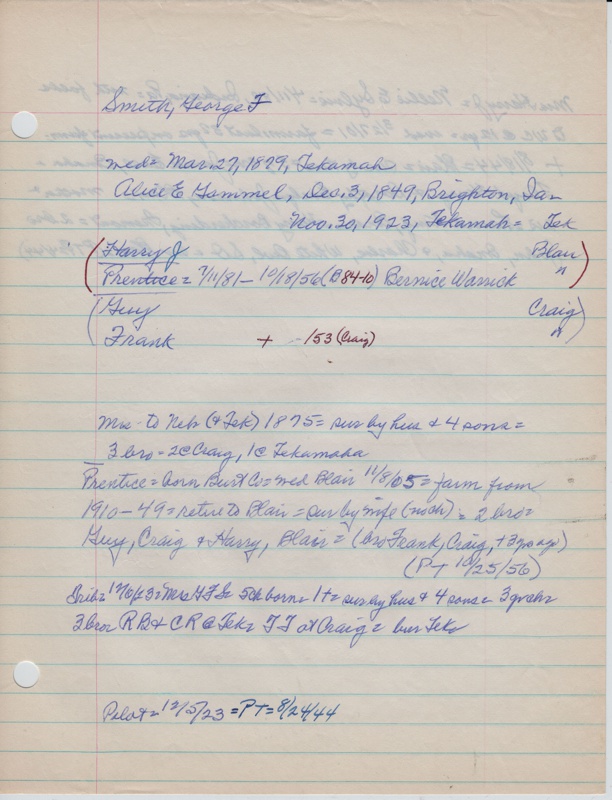 Smith, George F
wed= Mar. 27, 1879, Tekamah
Alice E Gammel, Dec. 3, 1849, Brighton, Ia=
Nov. 30, 1923, Tekamah= Tek
(Harry J Blair)
Prentice= 7/11/81- 10/18/56 (B 84-10) Bernice Warrick "
(Guy Craig)
Frank + -153 (Craig) "
Mrs- to Nebr (& Tek) 1875= sur by hus & 4 sons=
3 bro= 2@Craig, 1@ Tekamaha
Prentice= born Burt Co= wed Blair 11/8/05= farm from
1910-49= retire to Blair= sur by wife (no ch)= 2 bro=
Guy, Craig & Harry, Blair= (bro Frank, Craig, + 3 yrs ago)
(PT 10/25/56)
= Mrs G F S= 5 ch born= 1+= sur by hus & 4 sons= 3 grch=
3 bro= R B & C R @ Tek= F F at Craig= bur Tek=
Pilot= 12/5/23= PT= 8/24/44